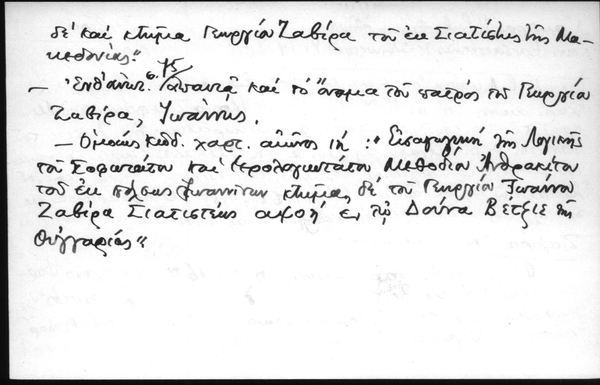 δὲ καὶ κτῆμα Γεωργίου Ζαβίρα τοῦ ἐκ Σιατίστης τῆς Μα-
κεδονίας."
— Ἐνθ' ἀνωτ. σ. 75 ἀπαντᾷ καὶ τὸ ὄνομα τοῦ πατρὸς τοῦ Γεωργίου
Ζαβίρα, Ἰωάννης.
— Ὁμοίως κῶδ. χαρτ. αἰῶνος ιή: "Εἰσαγωγικὴ τῆς Λογικῆς
τοῦ Σοφωτάτου καὶ Ἱερολογιωτάτου Μεθοδίου Ἀνθρακίτου
τοῦ ἐκ πόλεως Ἰωαννίνων κτῆμα, δὲ τοῦ Γεωργίου Ἰωάννου
Ζαβίρα Σιατιστέως ἐν τῷ Δούνα Βέτζιε τῆς
Οὐγγαρίας"